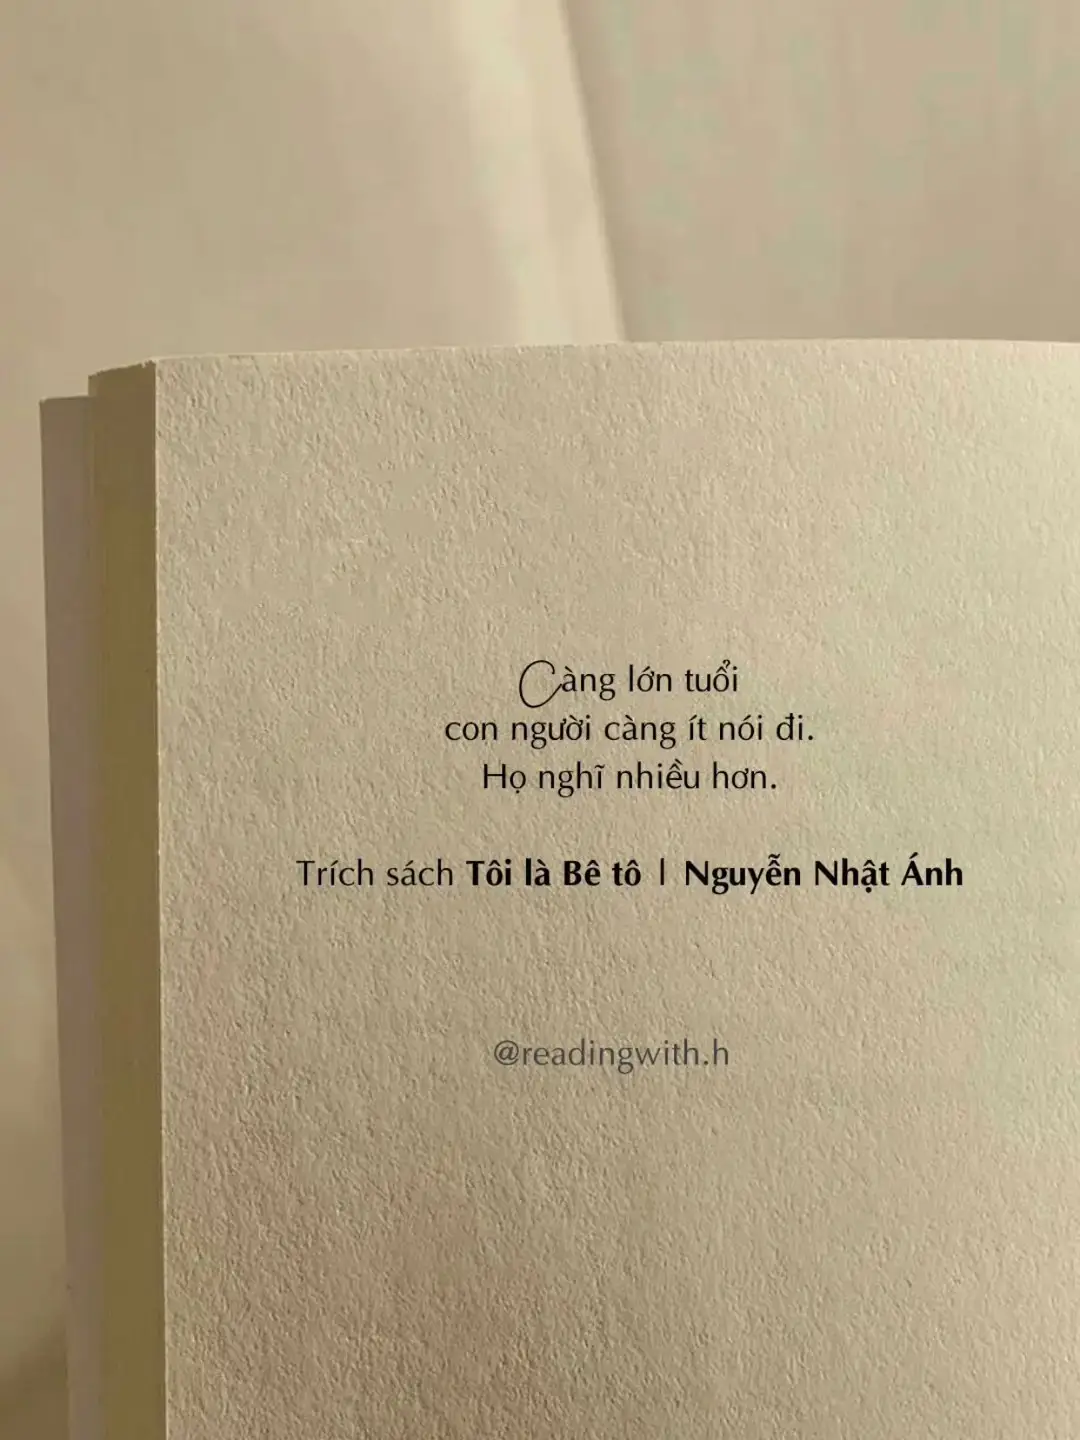 Càng lớn tuổi
con người càng ít nói đi.
Họ nghĩ nhiều hơn.
Trích sách Tôi là Bê tô | Nguyễn Nhật Ánh
@readingwith.h